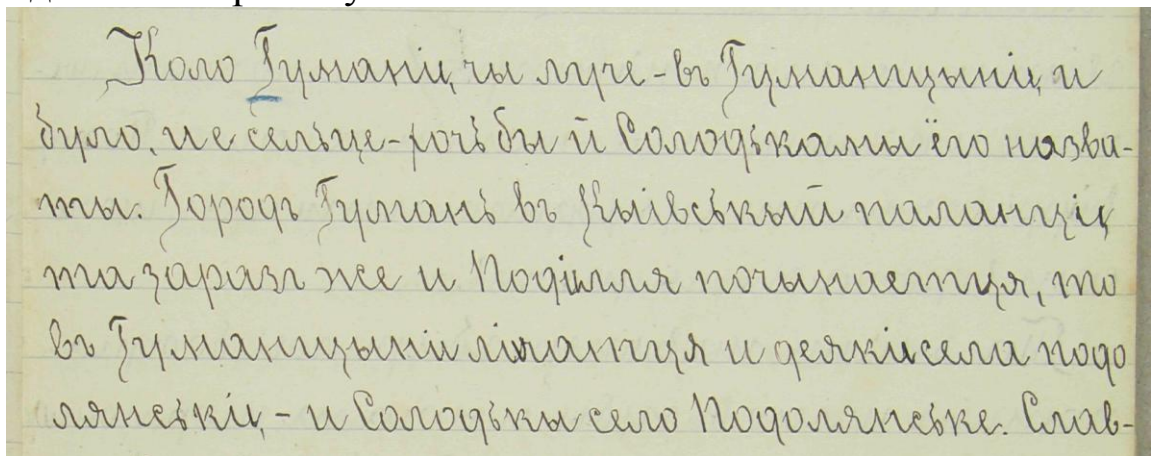 Коло Гумані, чы луче - въ Гуманщыні, и
було, це сельце - хочь бы й Солодькамы ёго назва-
ты. Городъ Гумань въ Кыівськый паланці,
та заразъ же и Поділля почынаетця, то
въ Гуманщыні лічатця и деякі села подо
лянські, - и Солодькы село Подолянське. Слав-